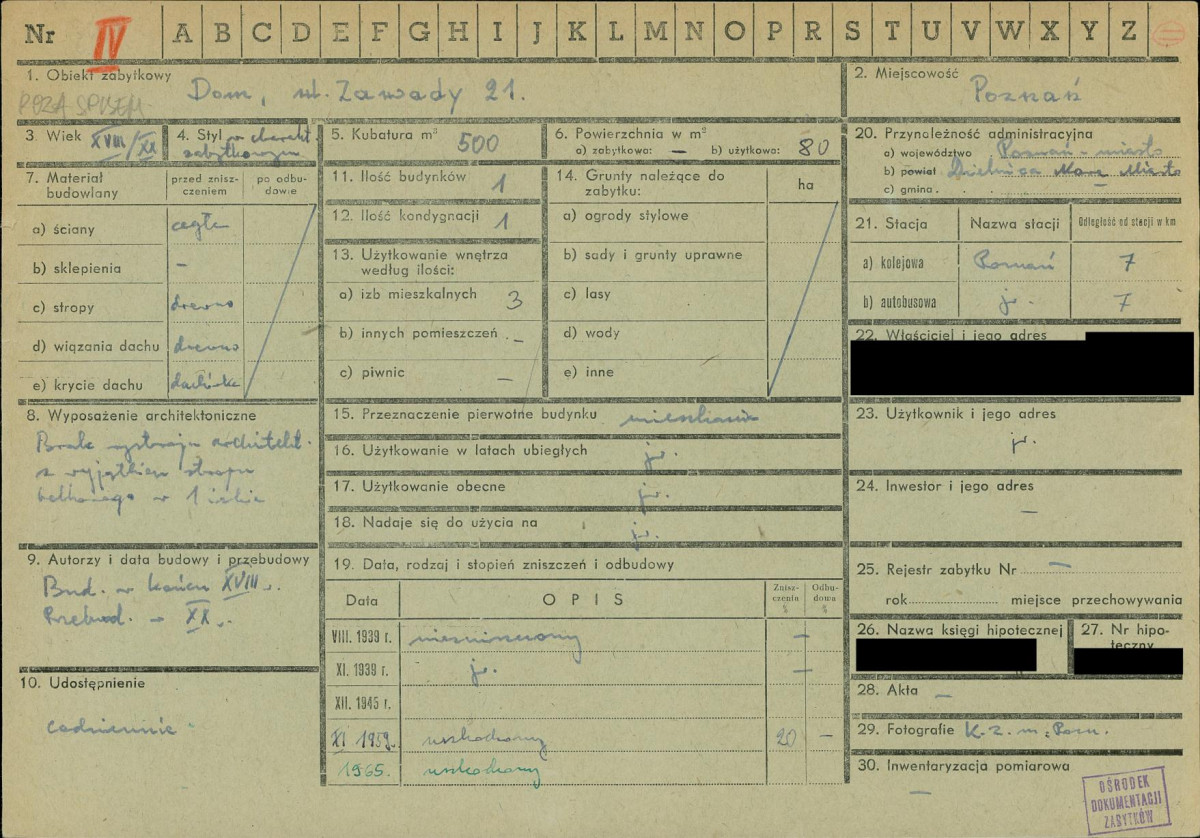 Nr IV A B C D E F G H I J K L M N O P R S T U V W X Y Z
1. Obiekt zabytkowy
POZA SPISEM
Dom, ul. Zawady 21.
2. Miejscowość
Poznań
3. Wiek XVIII/XX
4. Styl w charakt.
zabytkowym
5. Kubatura m³ 500
6. Powierzchnia w m²
a) zabytkowa: — b) użytkowa: 80
7. Materiał budowlany
przed zniszczeniem
po odbudowie
a) ściany cegła
b) sklepienia –
c) stropy drewno
d) wiązania dachu drewno
e) krycie dachu dachówka
8. Wyposażenie architektoniczne
Brak wystroju architekt.
z wyjątkiem stropu
belkowego w 1 izbie
9. Autorzy i data budowy i przebudowy
Bud. w końcu XVIII w.
Przebud. – XX w.
10. Udostępnienie
codziennie
11. Ilość budynków 1
12. Ilość kondygnacji 1
13. Użytkowanie wnętrza
według ilości:
a) izb mieszkalnych 3
b) innych pomieszczeń –
c) piwnic –
14. Grunty należące do
zabytku:
ha
a) ogrody stylowe
b) sady i grunty uprawne
c) lasy
d) wody
e) inne
15. Przeznaczenie pierwotne budynku
16. Użytkowanie w latach ubiegłych jw.
17. Użytkowanie obecne jw.
18. Nadaje się do użycia na jw.
19. Data, rodzaj i stopień zniszczeń i odbudowy
Data OPIS Zniszczenia % Odbudowa %
VIII. 1939 r. niezniszczony –
XI. 1939 r. jw. –
XII. 1945 r.
XI 1959. uszkodzony 20 –
1965. uszkodzony
20. Przynależność administracyjna
a) województwo Poznań - miasto
b) powiat Dzielnica Nowe Miasto
c) gmina.
21. Stacja Nazwa stacji Odległość od stacji w km
a) kolejowa Poznań 7
b) autobusowa jw. 7
22. Właściciel i jego adres
23. Użytkownik i jego adres
jw.
24. Inwestor i jego adres
–
25. Rejestr zabytku Nr –
rok miejsce przechowywania
26. Nazwa księgi hipotecznej
27. Nr hipoteczny
28. Akta –
29. Fotografie K.Z.m. Pozn.
30. Inwentaryzacja pomiarowa
–
OŚRODEK
DOKUMENTACJI
ZABYTKÓW